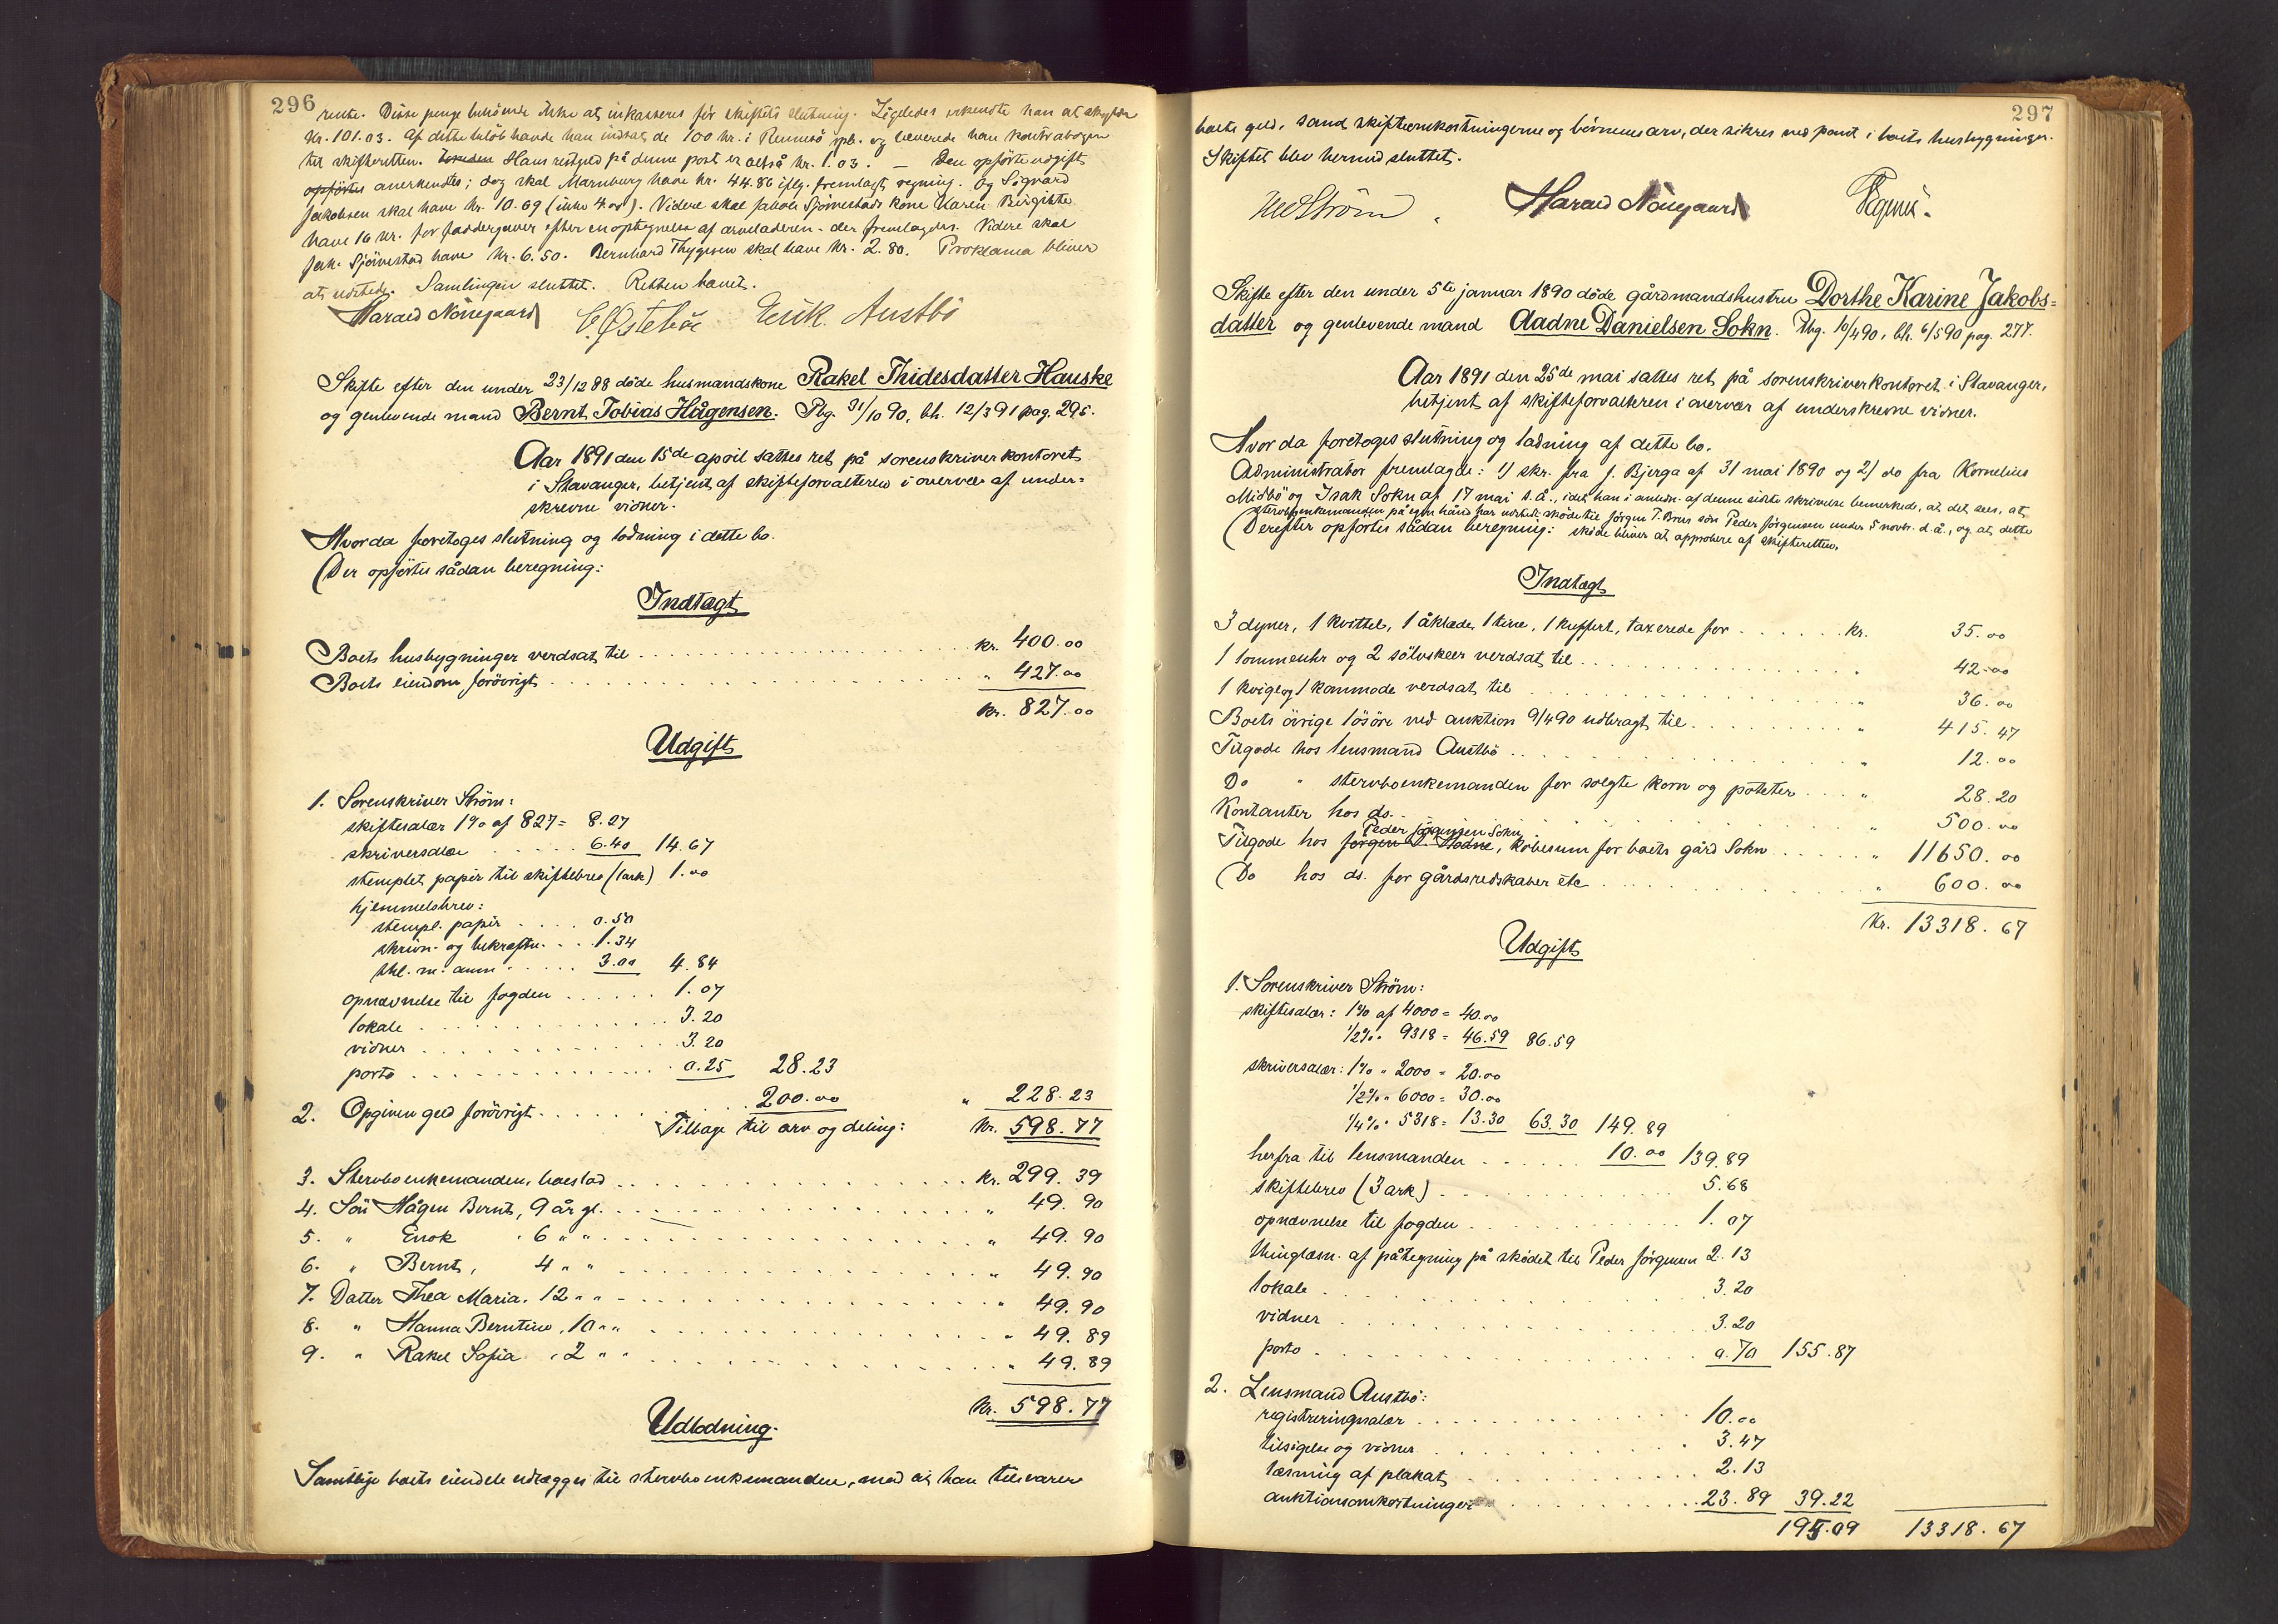 296
rente. Disse penge behövede ikke at inkasseres för skiftets slutning. Ligeledes erkendte han at skylde
kr. 101.03. Af dette belöb havde han indsat de 100 kr. i Rennesö spb. og leverede han kontrabogen
til skifteretten. Hans restgjeld på denne post er altså kr. 1.03. — Den opförte udgift
opförtes anerkendtes; dog skal Marnburg have kr. 44.86 iflg. fremlagt regning. Og Sigvard
Jakobsen skal have kr. 10.69 (ikke 4.00). Videre skal Jakob Sjörvestads kone Karen Birgitte
have 16 kr. for faddergaver efter en optegnelse af arveladeren. der fremlagdes. Videre skal
Jak. Sjörvestad have kr. 6.50. Bernhard Thygesen skal have kr. 2.80. Proklama bliver
at udstede. Samlingen sluttet. Retten hævet.
Harald Nörregaard C. Östebö Erik Austbö
Skifte efter den under 23/12 88 döde husmandskone Rakel Thidesdatter Hauske
og genlevende mand Bernt Tobias Hågensen. Rbg. 31/10 90, bh. 12/3 91 pag. 295.
Aar 1891 den 15de april sattes ret på sorenskriverkontoret
i Stavanger, betjent af skifteforvalteren i overvær af under=
skrevne vidner.
Hvorda foretoges slutning og lodning i dette bo.
Der opförtes sådan beregning:
Indtægt
Boets husbygninger verdsat til . . . kr. 400.00
Boets eiendom forövrigt . . . " 427.00
kr. 827.00
Udgift
1. Sorenskriver Ström:
skiftesalær 1% af 827 = 8.27
skriversalær . . . 6.40 14.67
stemplet papir til skiftebrev (1 ark) 1.00
hjemmelsbrev:
stempl. papir . . . 0.50
skrivn. og bekræftn. . . 1.34
thl. m. anm . . . 3.00 4.84
opnævnelse til fogden . . . 1.07
lokale . . . 3.20
vidner . . . 3.20
porto . . . 0.25 28.23
2. Opgiven gjeld forövrigt . . . 200.00 " 228.23
Tilbage til arv og deling: kr. 598.77
3. Stervboenkemanden, boeslod . . . kr. 299.39
4. Sön Hågen Bernt, 9 år gl. . . . " 49.90
5. " Enok " 6 " " . . . " 49.90
6. " Bernt, 4 " " . . . " 49.90
7. Datter Thea Maria, 12 " " . . . " 49.90
8. " Hanna Berntine, 10 " " . . . " 49.89
9. " Rakel Sofia, 2 " " . . . " 49.89
kr. 598.77
Udlodning.
Samtlige boets eiendele udlægges til stervboenkemanden, mod at han tilsvarer
297
boets gjeld, samt skifteomkostningerne og börnenes arv, der sikres ved pant i boets husbygninger.
Skiftet blev hermed sluttet.
Ström Harald Nörregaard
Skifte efter den under 5te januar 1890 döde gårdmandshustru Dorthe Karine Jakobs=
datter og genlevende mand Aadne Danielsen Sokn. Rbg. 10/4 90, bh. 6/5 90 pag. 277.
Aar 1891 den 25de mai sattes ret på sorenskriverkontoret i Stavanger,
betjent af skifteforvalteren i overvær af underskrevne vidner.
Hvorda foretoges slutning og lodning af dette bo.
Administrator fremlagde: 1) skr. fra J. Bjerga af 31 mai 1890 og 2) do fra Kornelius
Midbö og Isak Sokn af 17 mai s.å., idet han i anledn. af denne sidste skrivelse bemerkede, at det sees, at
stervboenkemanden på egen hånd har udstedt sköde til Jörgen T. Brus sön Peder Jörgensen under 5 novbr. d.å., og at dette
Derefter opförtes sådan beregning: sköde bliver at approbere af skifteretten.
Indtægt
3 dyner, 1 kvittel, 1 åklæde, 1 tine, 1 kuffert, taxerede for . . . kr. 35.00
1 lommeuhr og 2 sölvskeer verdsat til . . . " 42.00
1 kvige og 1 kommode verdsat til . . . " 36.00
Boets övrige lösöre ved auktion 9/4 90 udbragt til . . . " 415.47
Tilgode hos lensmand Austbö . . . " 12.00
Do " stervboenkemanden for solgte korn og poteter . . . " 28.20
Kontanter hos ds. . . . " 500.00
Peder Jörgensen Sokn
Tilgode hos Jörgen T. Hodne, köbesum for boets gård Sokn . . . " 11650.00
Do hos ds. for gårdsredskaber etc . . . " 600.00
kr. 13318.67
Udgift
1. Sorenskriver Ström:
skiftesalær: 1% af 4000 = 40.00
1/2% " 9318 = 46.59 86.59
skriversalær: 1% " 2000 = 20.00
1/2% " 6000 = 30.00
1/4% " 5318 = 13.30 63.30 149.89
herfra til lensmanden . . . 10.00 139.89
skiftebrev (3 ark) . . . 5.68
opnævnelse til fogden . . . 1.07
thinglæsn. af påtegning på sködet til Peder Jörgensen 2.13
lokale . . . 3.20
vidner . . . 3.20
porto . . . 0.70 155.87
2. Lensmand Austbö:
registreringssalær . . . 10.00
tilsigelse og vidner . . . 3.47
læsning af plakat . . . 2.13
auktionsomkostninger . . . 23.89 39.22
195.09 13318.67